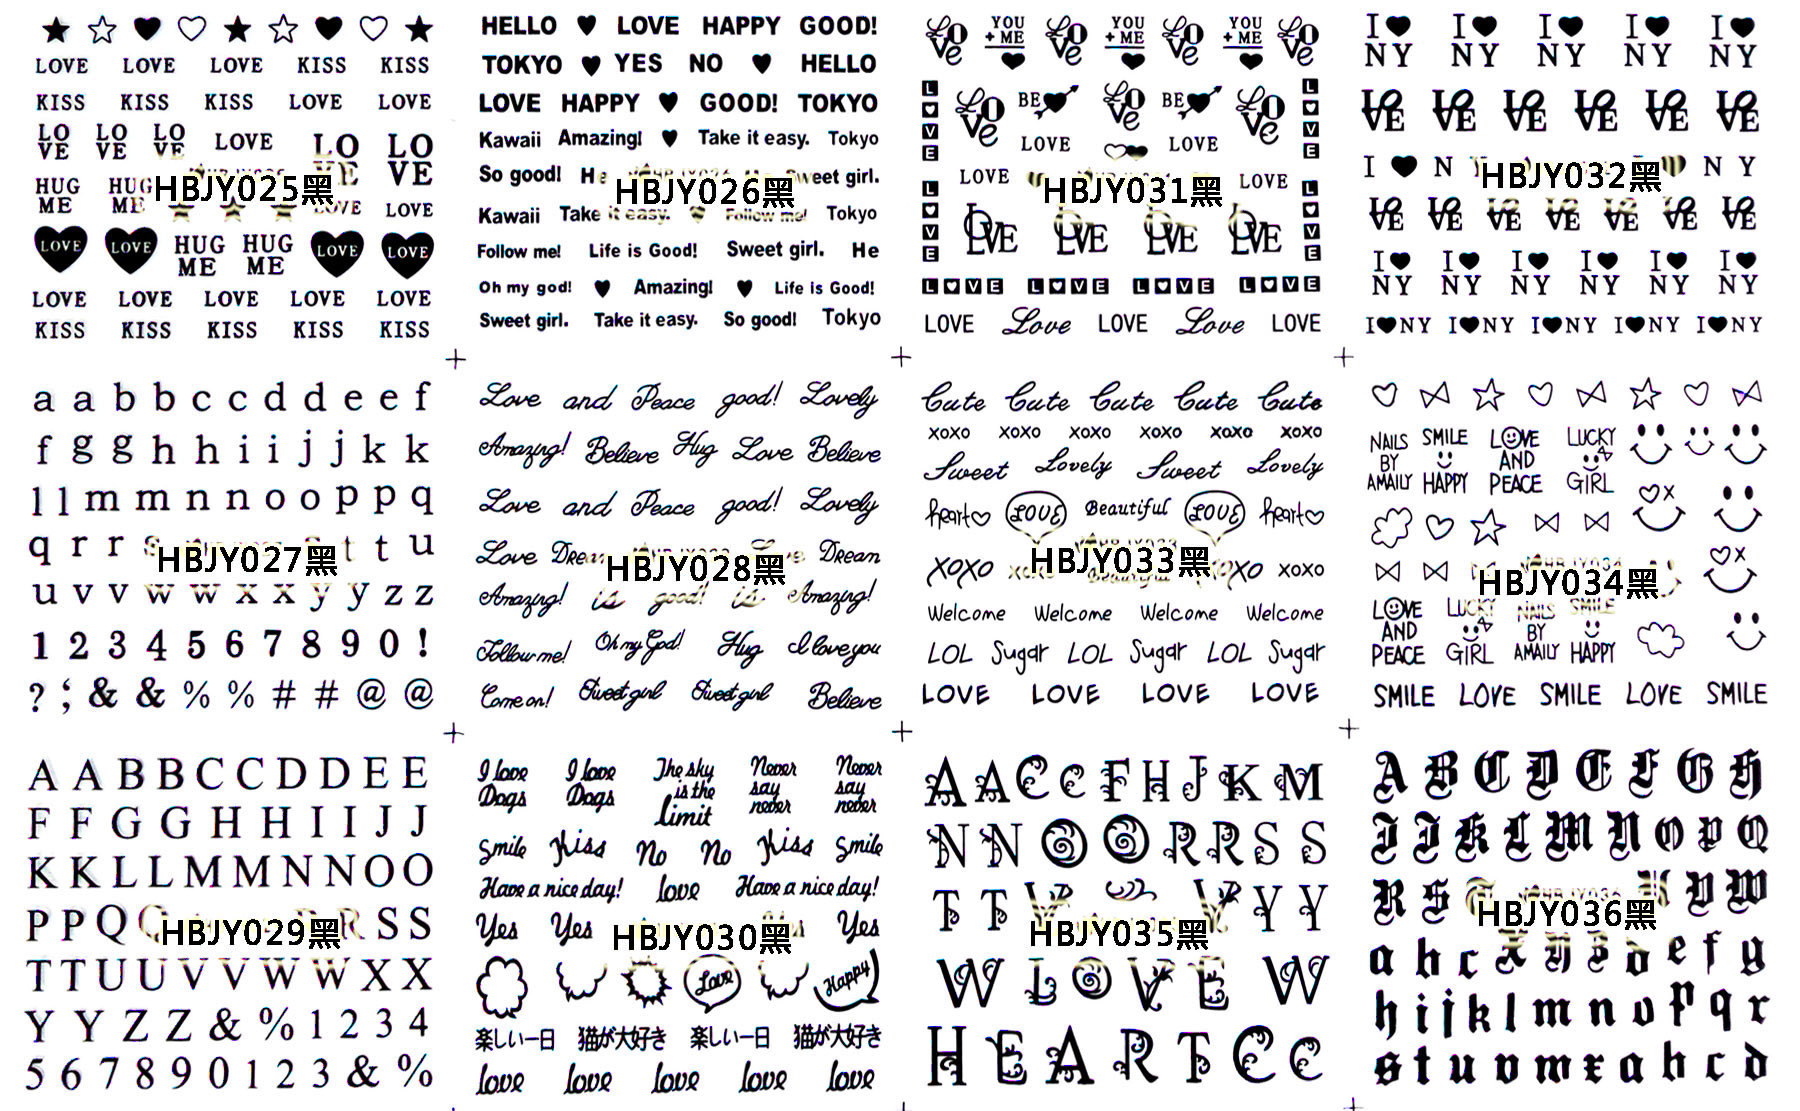 LOVE LOVE LOVE KISS KISS
KISS KISS KISS LOVE LOVE
LO VE LO VE LO VE LOVE LO VE LO VE
HUG ME HUG ME HBJY025黑 LOVE LOVE
LOVE LOVE HUG ME HUG ME LOVE LOVE
LOVE LOVE LOVE LOVE LOVE
KISS KISS KISS KISS KISS
HELLO ♥ LOVE HAPPY GOOD!
TOKYO ♥ YES NO ♥ HELLO
LOVE HAPPY ♥ GOOD! TOKYO
Kawaii Amazing! ♥ Take it easy. Tokyo
So good! He HBJY026黑 Sweet girl.
Kawaii Take it easy. Follow me! Tokyo
Follow me! Life is Good! Sweet girl. He
Oh my god! ♥ Amazing! ♥ Life is Good!
Sweet girl. Take it easy. So good! Tokyo
LOVE YOU + ME LOVE YOU + ME LOVE YOU + ME LOVE
LOVE BE LOVE BE LOVE
LOVE LOVE
LOVE HBJY031黑 LOVE
LOVE LOVE LOVE LOVE
L♥VE L♥VE L♥VE L♥VE
LOVE Love LOVE Love LOVE
I♥NY I♥NY I♥NY I♥NY I♥NY
LOVE LOVE LOVE LOVE LOVE LOVE
I ♥ N Y HBJY032黑 N Y
LOVE LOVE LOVE LOVE LOVE LOVE LOVE
I♥NY I♥NY I♥NY I♥NY I♥NY I♥NY
I♥NY I♥NY I♥NY I♥NY I♥NY
a a b b c c d d e e f
f g g h h i i j j k k
l l m m n n o o p p q
q r r s HBJY027黑 t t u
u v v w w x x y y z z
1 2 3 4 5 6 7 8 9 0 !
? ; & & % % # # @ @
Love and Peace good! Lovely
Amazing! Believe Hug Love Believe
Love and Peace good! Lovely
Love Dream HBJY028黑 Dream
Amazing! is good! is Amazing!
Follow me! Oh my God! Hug I love you
Come on! Sweet girl Sweet girl Believe
Cute Cute Cute Cute Cute
xoxo xoxo xoxo xoxo xoxo xoxo
Sweet Lovely Sweet Lovely
heart LOVE Beautiful LOVE heart
XOXO HBJY033黑 XOXO xoxo
Welcome Welcome Welcome Welcome
LOL Sugar LOL Sugar LOL Sugar
LOVE LOVE LOVE LOVE
NAILS BY AMAILY SMILE HAPPY LOVE AND PEACE LUCKY GIRL
HBJY034黑
LOVE AND PEACE LUCKY GIRL NAILS BY AMAILY SMILE HAPPY
SMILE LOVE SMILE LOVE SMILE
A A B B C C D D E E
F F G G H H I I J J
K K L L M M N N O O
P P Q HBJY029黑 R S S
T T U U V V W W X X
Y Y Z Z & % 1 2 3 4
5 6 7 8 9 0 1 2 3 & %
I love Dogs I love Dogs The sky is the limit Never say never Never say never
Smile Kiss No No Kiss Smile
Have a nice day! love Have a nice day!
Yes Yes HBJY030黑 Yes
Love Happy
楽しい一日 猫が大好き 楽しい一日 猫が大好き
love love love love love
A A C C F H J K M
N N O O R R S S
T T V HBJY035黑 V Y Y
W L O V E W
H E A R T C C
A B C D E F G H
I J K L M N O P Q
R S HBJY036黑 V W
a b c X Y Z d e f g
h i j k l m n o p q r
s t u v w x a b c d